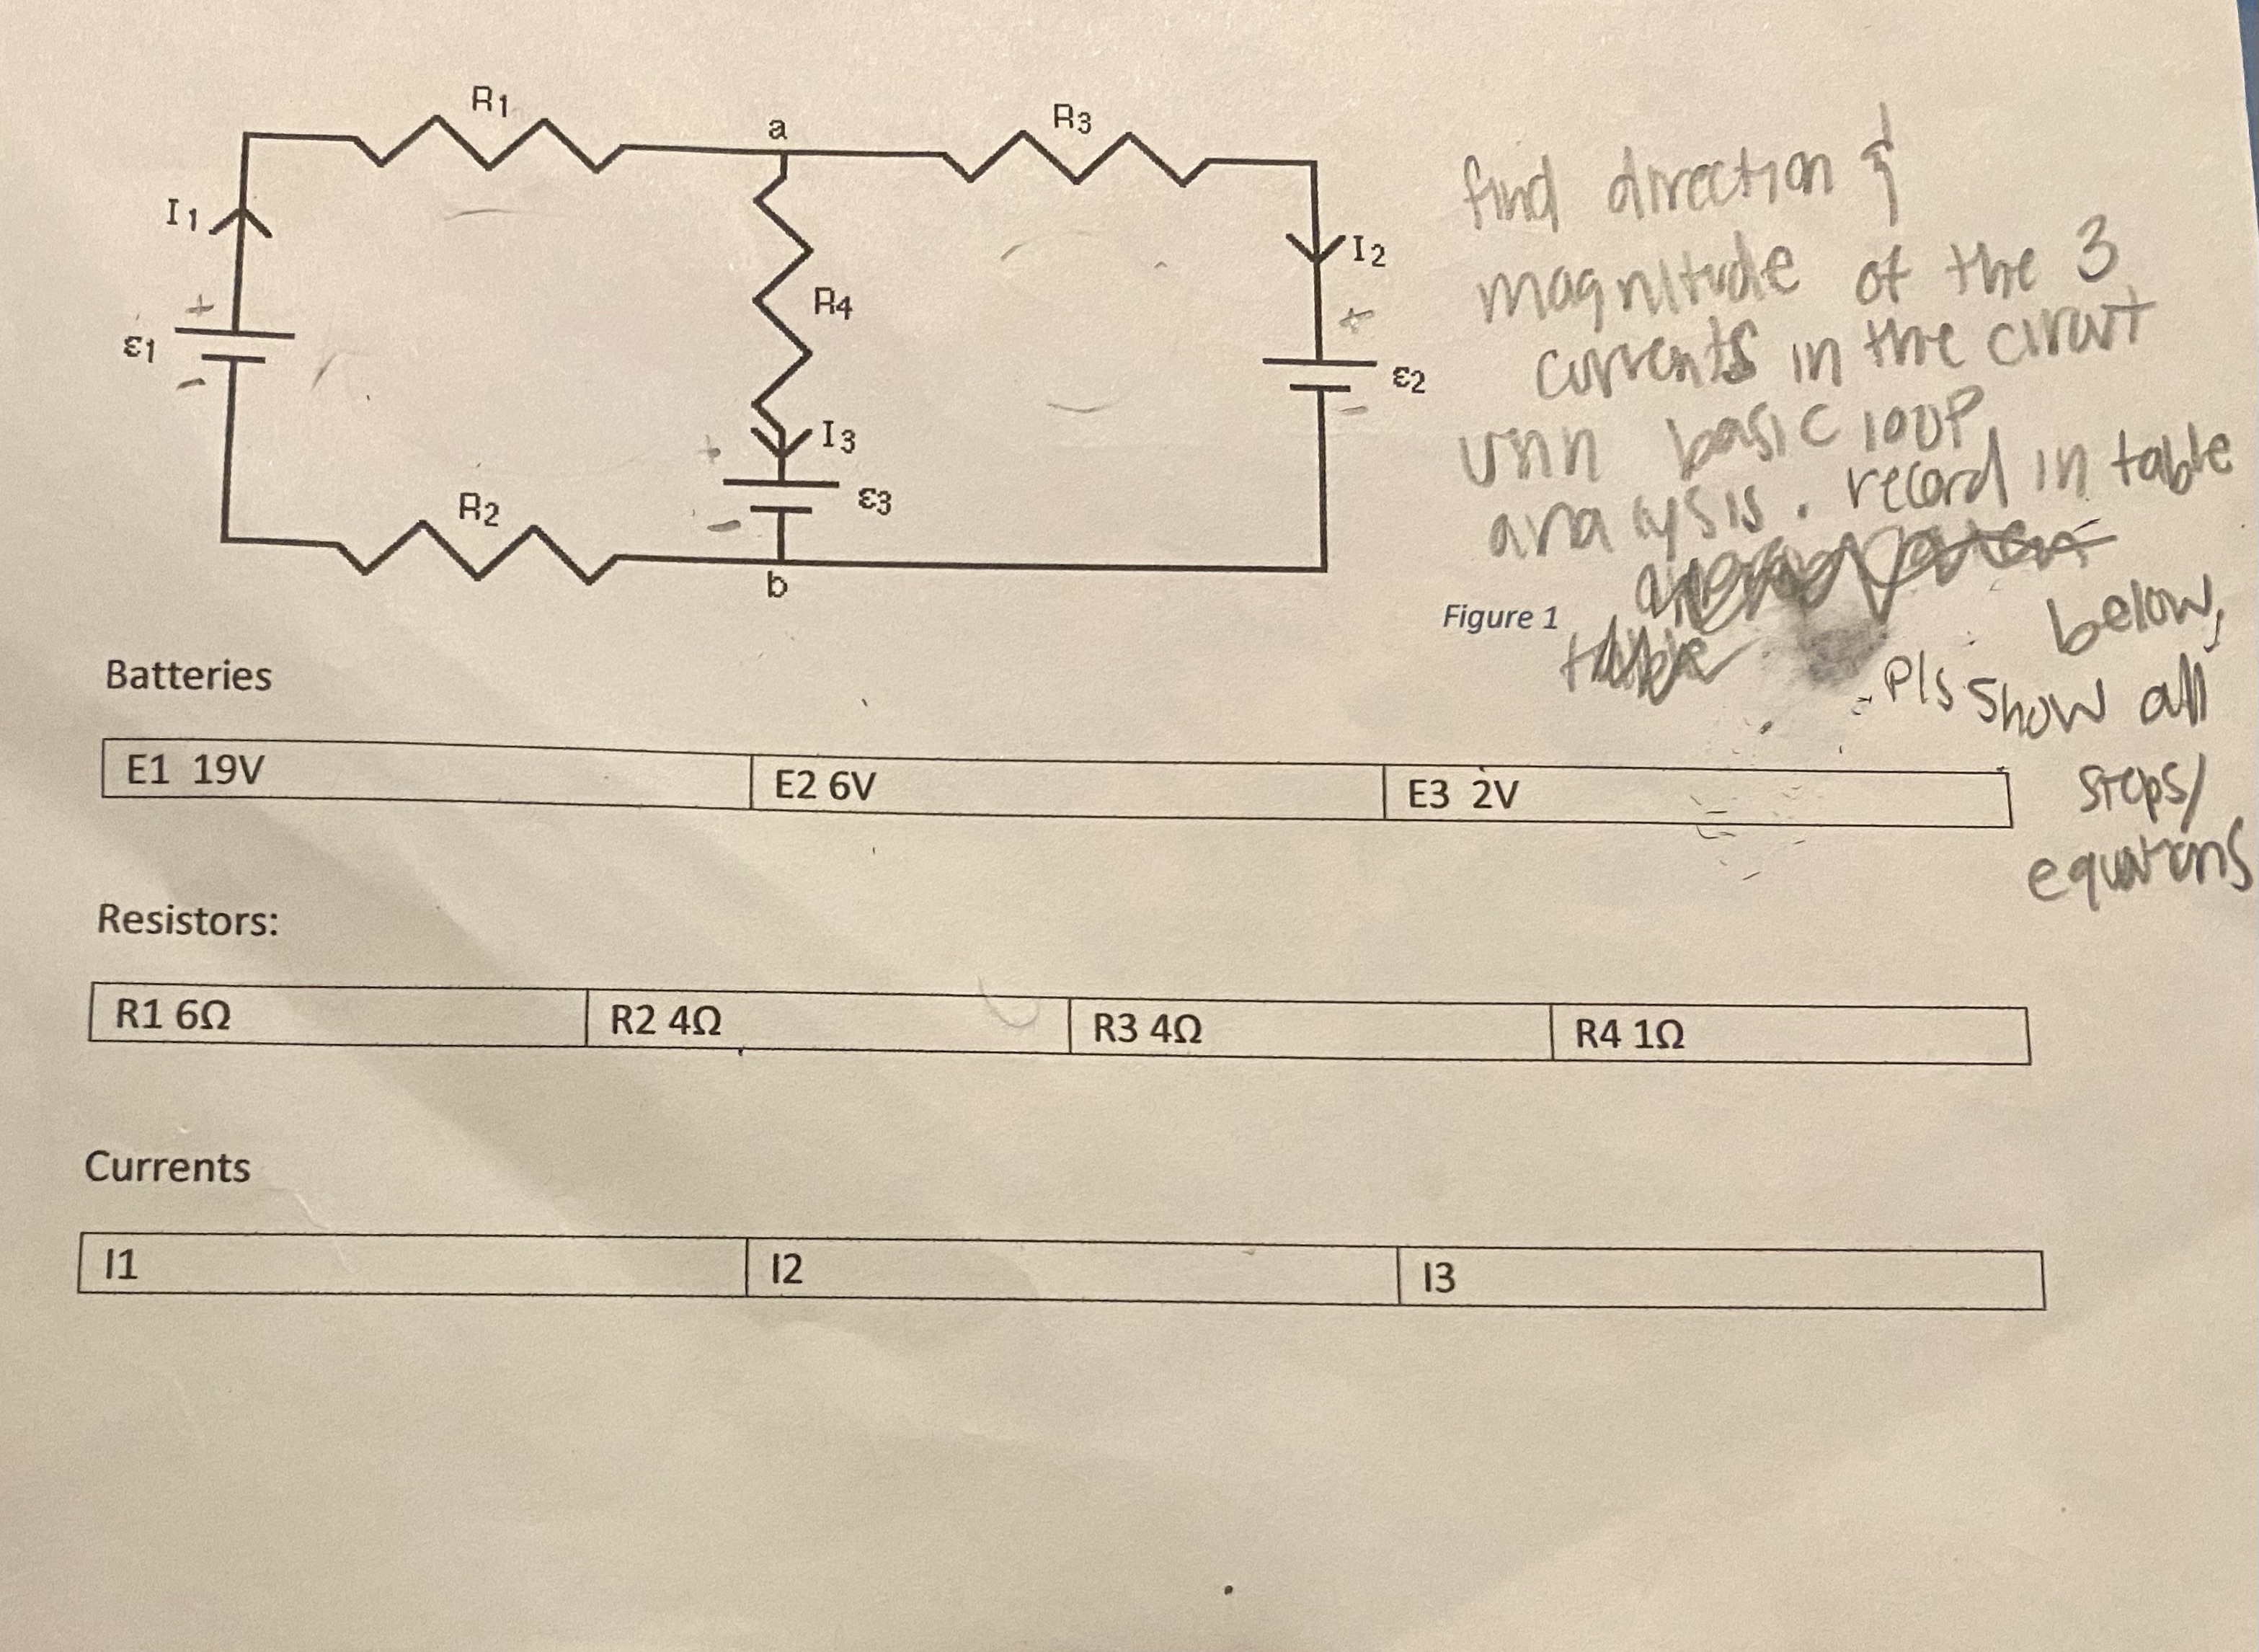 R1
a
R3
I1
I2
R4
ε1
ε2
I3
ε3
R2
b
+
-
+
-
+
-
find direction &
magnitude of the 3
currents in the circuit
basic loop
analysis. record in table
below,
Pls show all
steps/
equations
Figure 1
table
Batteries
E1 19V
E2 6V
E3 2V
Resistors:
R1 6Ω
R2 4Ω
R3 4Ω
R4 1Ω
Currents
I1
I2
I3